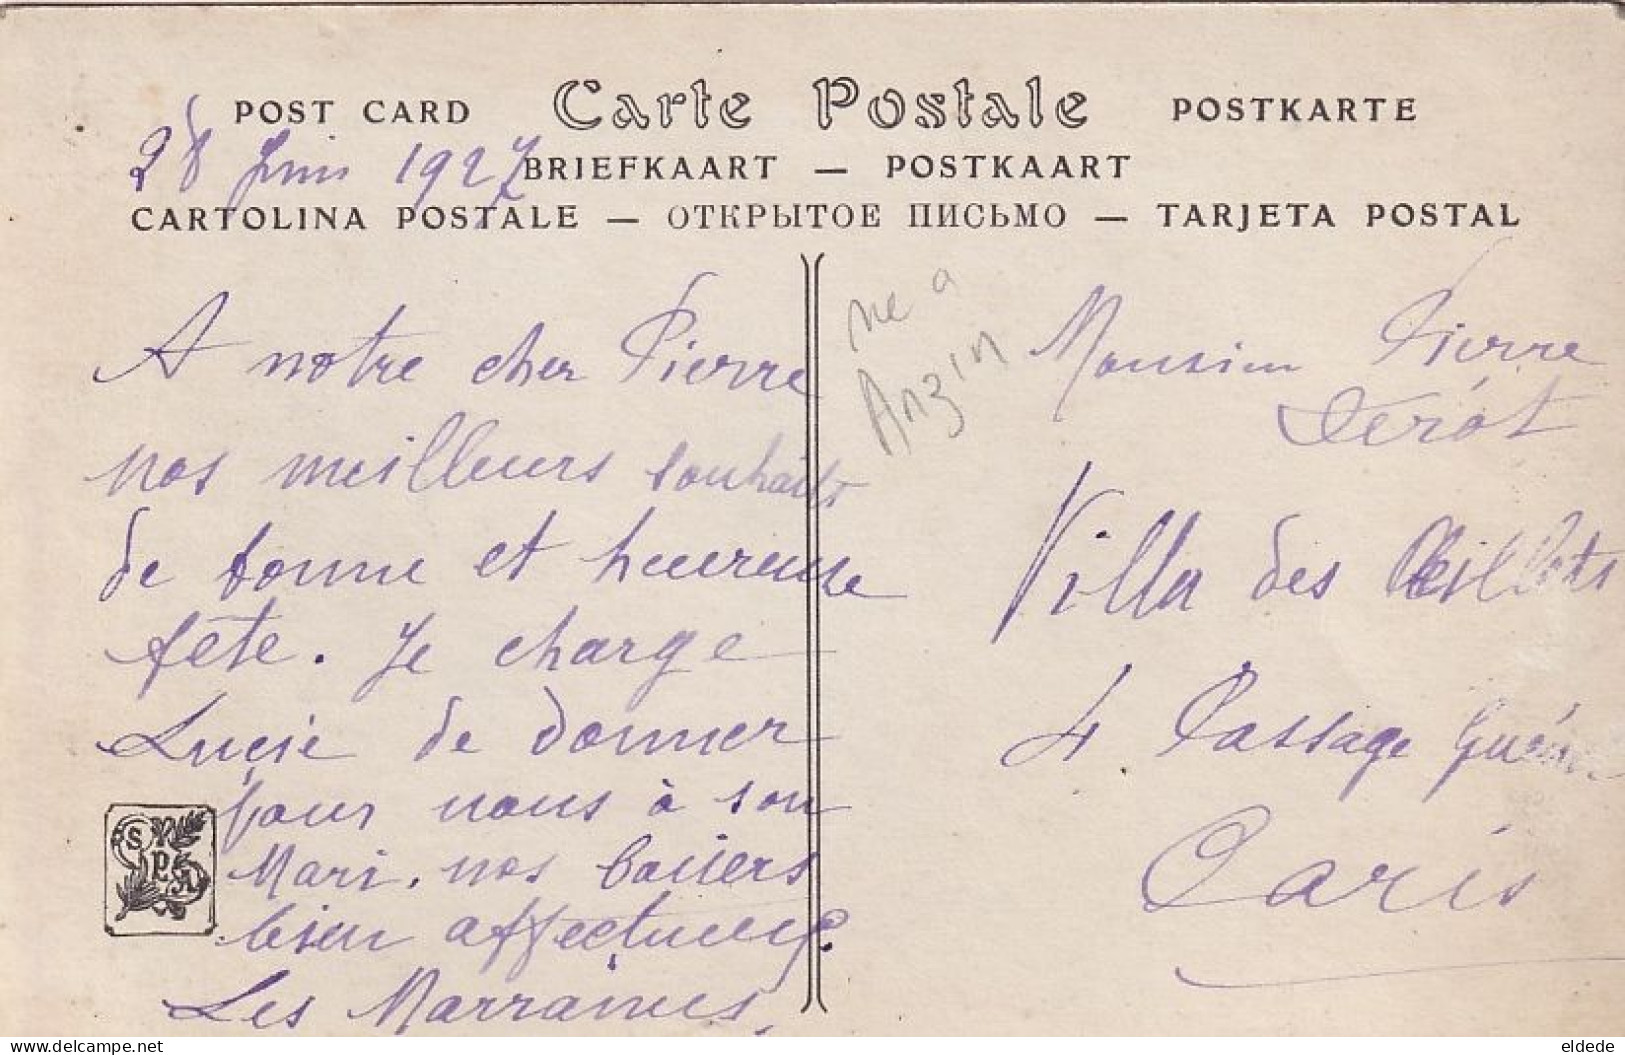 POST CARD Carte Postale POSTKARTE
28 Juin 1927
BRIEFKAART — POSTKAART
CARTOLINA POSTALE — ОТКРЫТОЕ ПИСЬМО — TARJETA POSTAL
A notre cher Pierre
nos meilleurs souhaits
de bonne et heureuse
fête. Je charge
Lucie de donner
pour nous à son
Mari. nos baisers
bien affectueux.
Les Marraines.
SPA
né a
Anzin
Monsieur Pierre
Dérot
Villa des Oeillets
4 Passage
Paris
delcampe.net
eldede